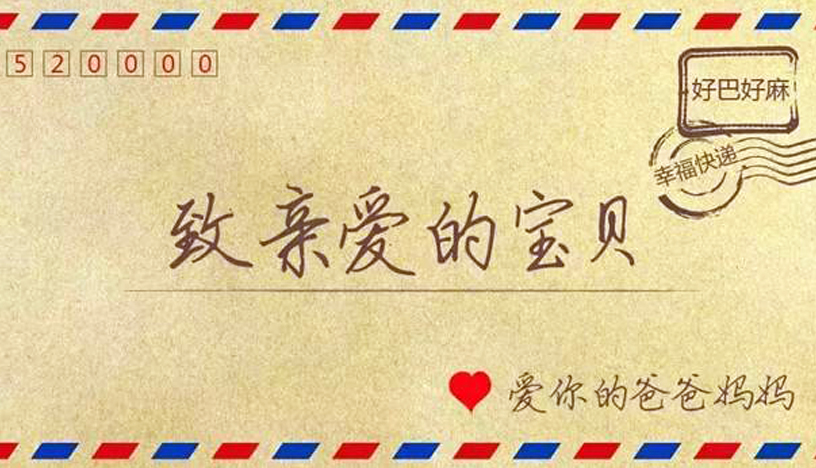 520000
好巴好麻
幸福快递
致亲爱的宝贝
爱你的爸爸妈妈